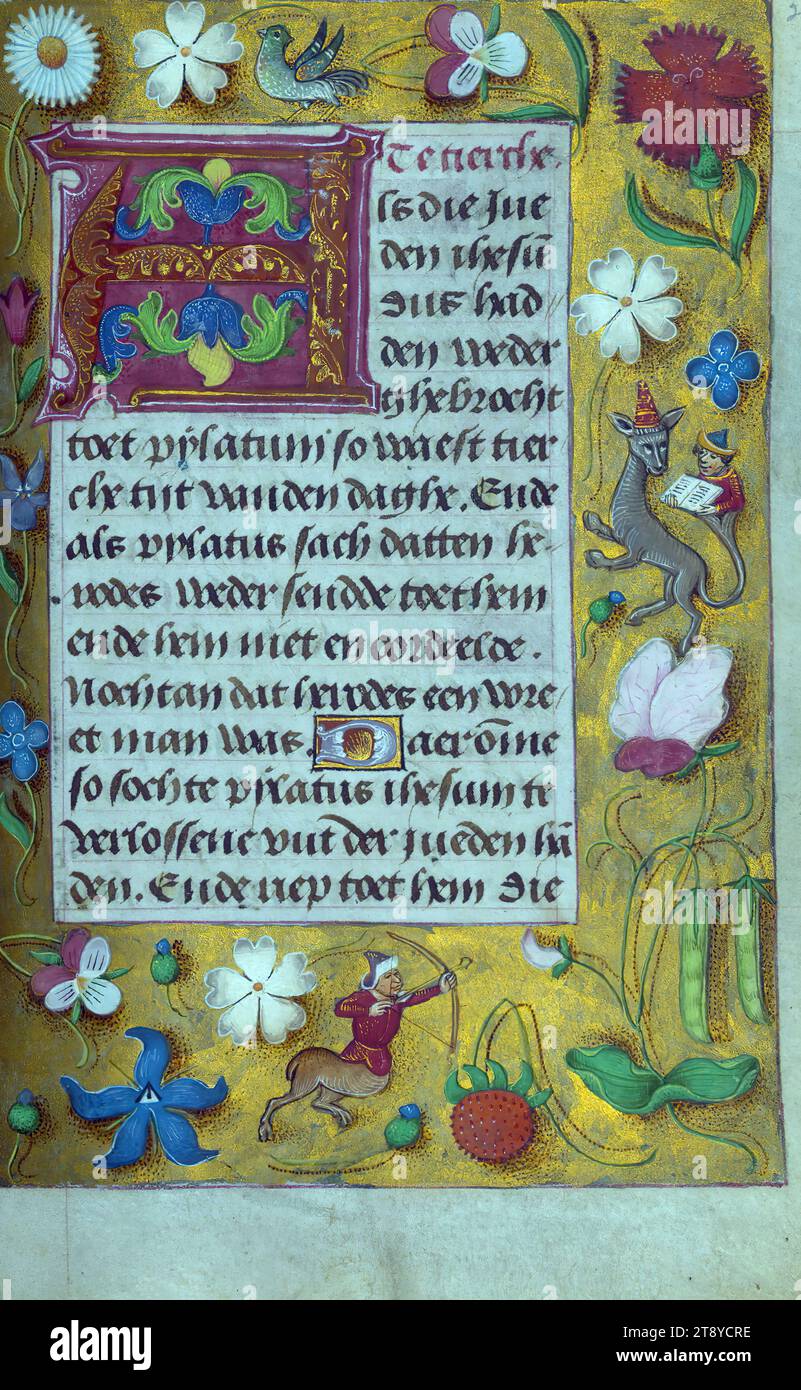 Te tierche.
Als die Jue
den ihesū
Dus had
den weder
ghebrocht
toet pylatum so waest tier
che tijt vanden daghe. Ende
als pylatus sach datten he-
rodes weder sendde toet hem
ende hem niet en oordeelde.
Nochtan dat herodes een wre
et man was. Daerōme
so sochte pylatus ihesum te
verlossene vut der jueden hā
den. Ende riep toet hem Die
alamy
Image ID: 2T8YCRE
www.alamy.com